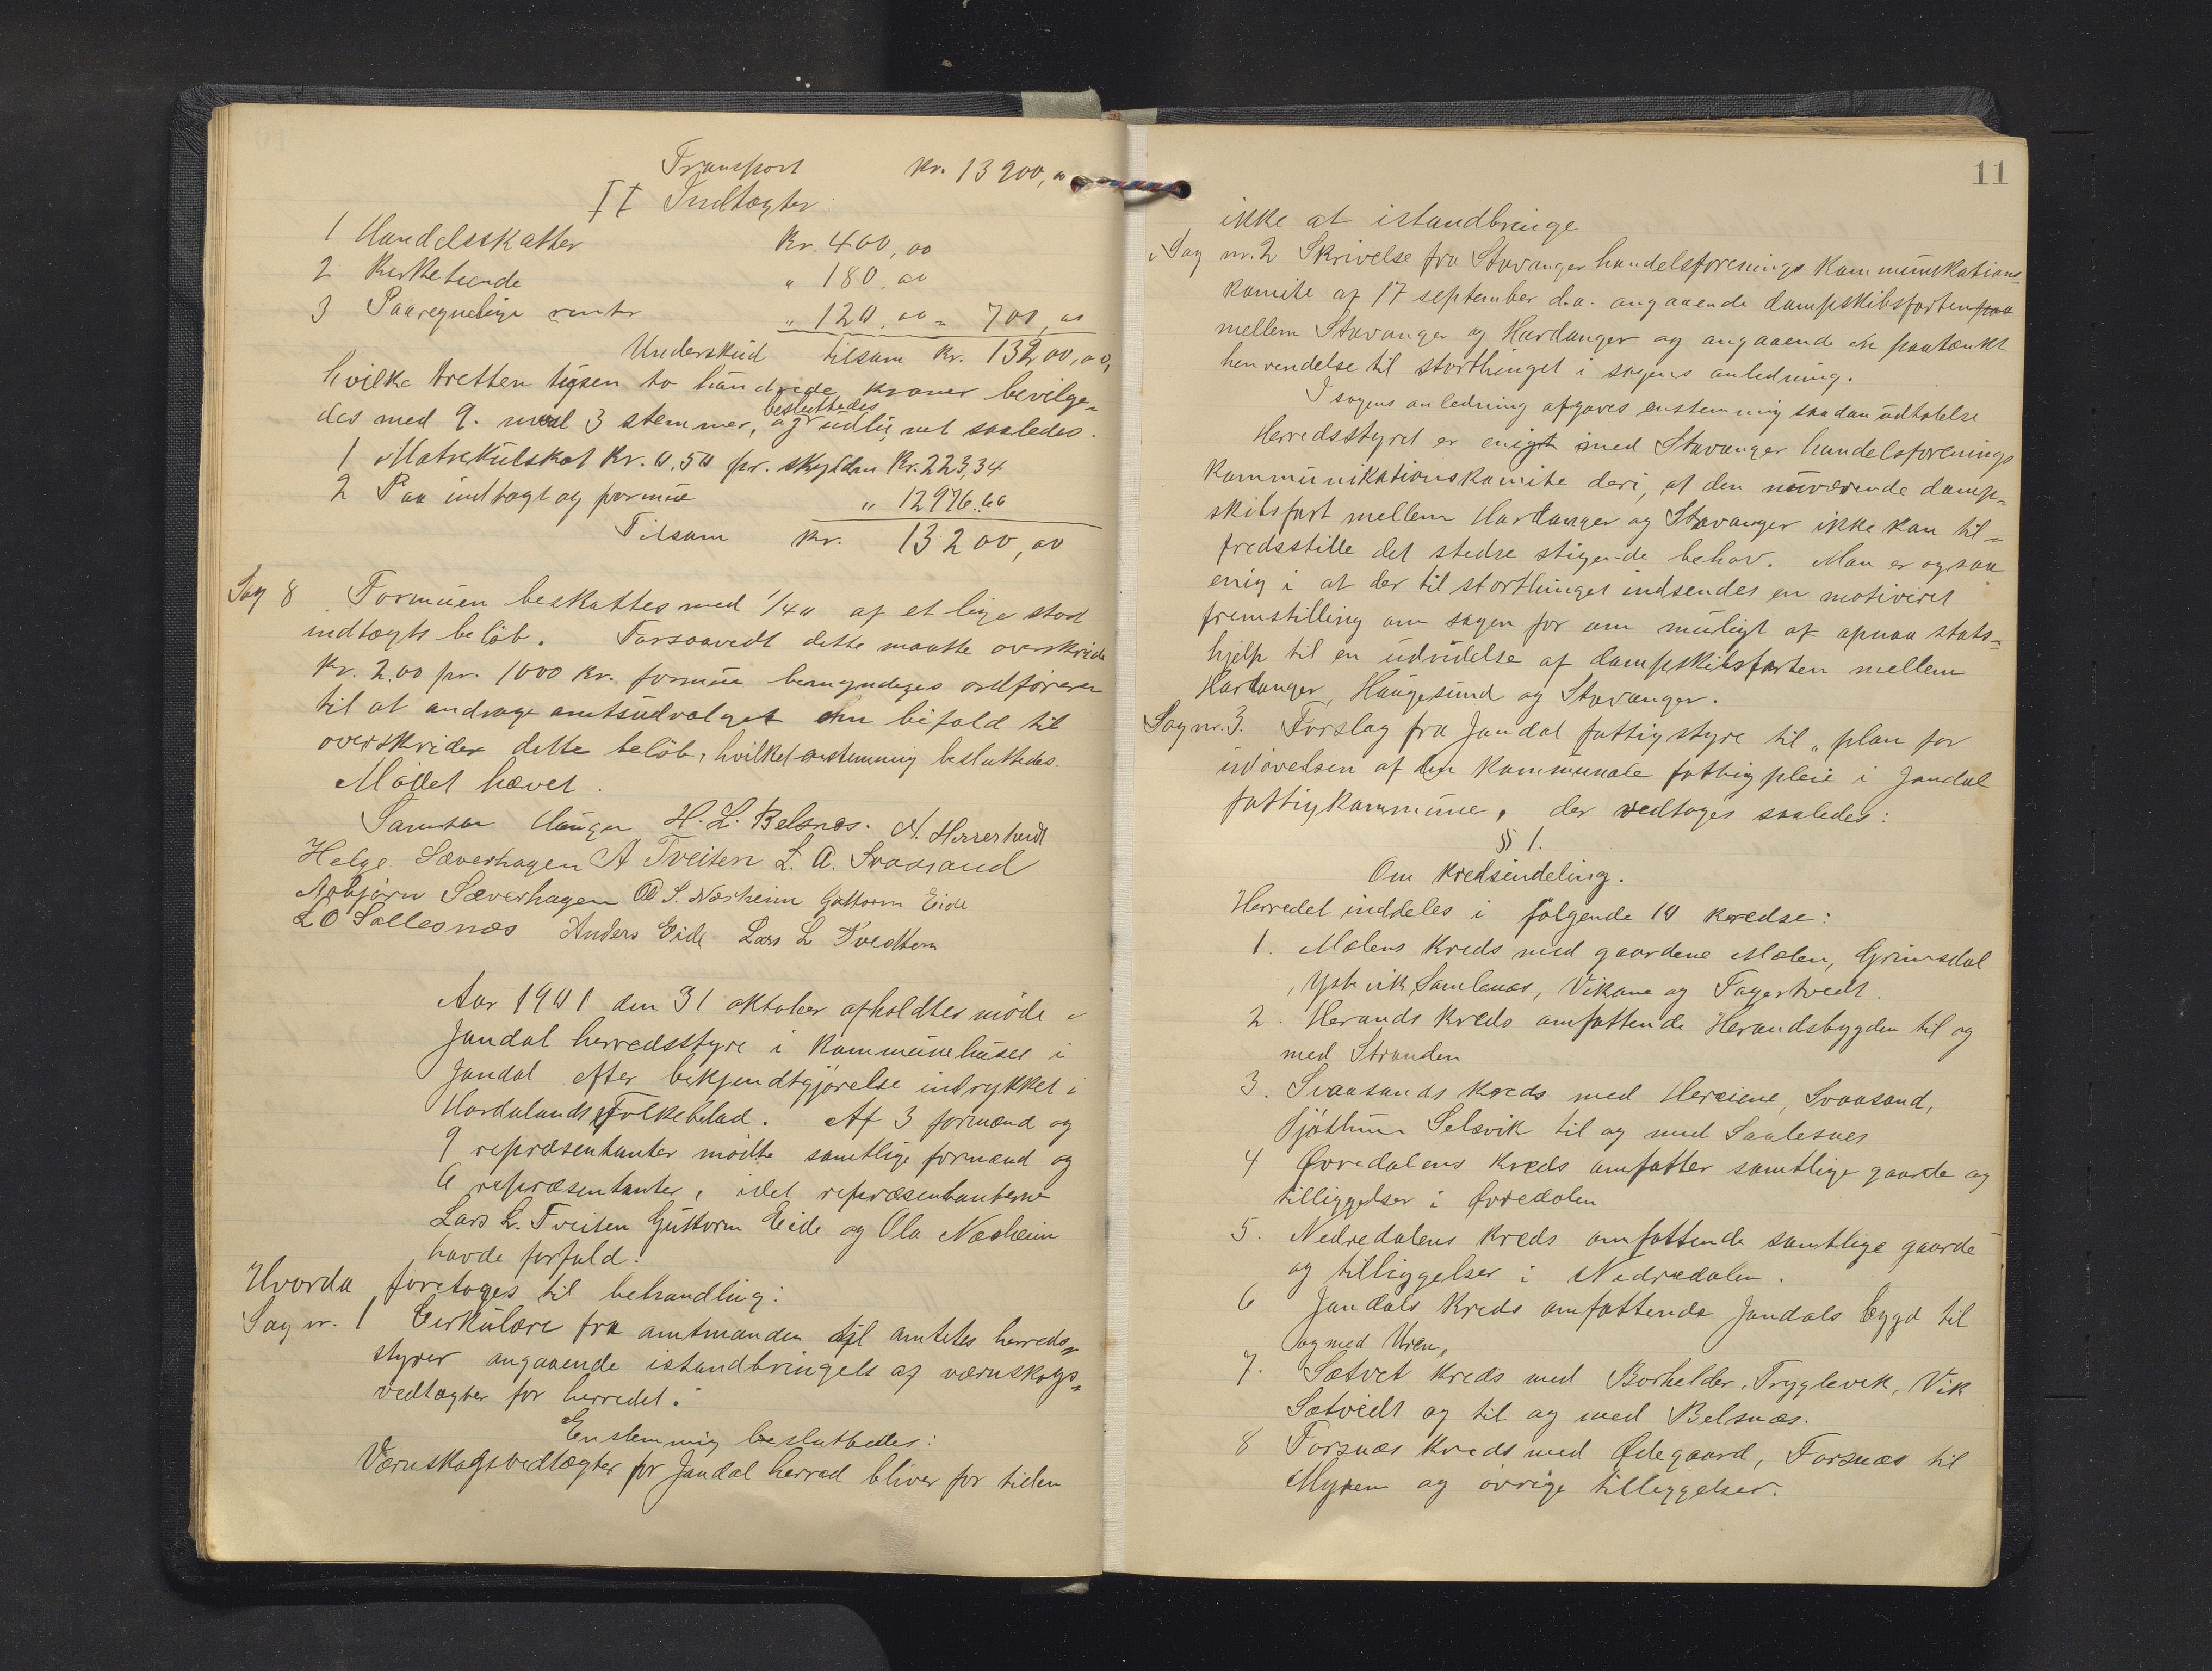 Transport Kr. 13900,00
II Indtægter:
1 Handelsskatter Kr. 400,00
2 Kirketiende " 180,00
3 Paaregnelige renter " 120,00 = 700,00
Underskud tilsam Kr. 13200,00,
hvilke tretten tusen to hundrede kroner bevilge-
des med 9. mod 3 stemmer, og besluttedes udlignet saaledes.
1 Matrikulskat Kr. 0,50 pr. skylden Kr. 223,34
2 Paa indtægt og formue " 12976.66
Tilsam Kr. 13200,00
Sag 8 Formuen beskattes med 1/40 af et lige stort
indtægts beløb. Forsaavedt dette maatte overskride
Kr. 2,00 pr. 1000 Kr. formue bemyndiges ordfører
til at andrage amtsudvalget om bifald til
overskride dette beløb, hvilket enstemmig besluttedes.
Mødet hævet.
Samson Hauge H. L. Belsnes. N. Herrestvedt
Helge Sæverhagen A Tveiten L. A. Svaasand
Asbjørn Sæverhagen O. S. Næsheim Guttorm Eide
L O Sollesnæs Anders Eide Lars L Tveiten
Aar 1901 den 31 oktober afholdtes møde i
Jondal herredsstyre i kommunehuset i
Jondal efter bekjendtgjørelse indrykket i
Hordalands Folkeblad. Af 3 formænd og
9 repræsentanter mødte samtlige formænd og
6 repræsentanter, idet repræsentanterne
Lars L. Tveiten Guttorm Eide og Ola Næsheim
havde forfald.
Hvorda foretoges til behandling:
Sag nr. 1 Cirkulære fra amtmanden til amtets herreds-
styrer angaaende istandbringels af værnskogs-
vedtægter for herredet.
Enstemmig besluttedes:
Værnskogsvedtægter for Jondal herred bliver for tiden
11
ikke at istandbringe
Sag nr. 2 Skrivelse fra Stavanger handelsforenings kommunikations-
komite af 17 september d.a. angaaende dampskibsfarten
mellem Stavanger og Hardanger og angaaende en paatænkt
henvendelse til storthinget i sagens anledning.
I sagens anledning afgaves enstemmig saadan udtalelse
Herredsstyret er enigt med Stavanger handelsforenings
kommunikationskomite deri, at den nuværende damp-
skibsfart mellem Hardanger og Stavanger ikke kan til-
fredsstille det stedse stigende behov. Man er ogsaa
enig i at der til storthinget indsendes en motiveret
fremstilling om sagen for om muligt at opnaa stats-
hjelp til en udvidelse af dampskibsfarten mellem
Hardanger, Haugesund og Stavanger.
Sag nr. 3. Forslag fra Jondal fattigstyre til "plan for
udøvelsen af den kommunale fattigpleie i Jondal
fattigkommune, der vedtoges saaledes:
§ 1.
Om kredsindeling.
Herredet inddeles i følgende 10 kredse:
1. Mælens kreds med gaardene Mælen, Grimsdal
Ystevik, Samlenæs, Vikane og Fagertvedt.
2. Herands kreds omfattende Herandsbygden til og
med Stranden
3. Svaasands kreds med Hereiene, Svaasand,
Selsvik til og med Saalesnes
4 Øvredalens kreds omfatter samtlige gaarde og
tilliggelser i Øvredalen
5. Nedredalens kreds omfattende samtlige gaarde
og tilliggelser i Nedredalen.
6 Jondals kreds omfattende Jondals bygd til
og med Uren,
7. Sætvet kreds med Borhelder, Tryglevik, Vik
Sætvedt og til og med Belsnæs.
8 Torsnæs kreds med Ødegaard, Torsnæs til
Myren og øvrige tilleggelser.